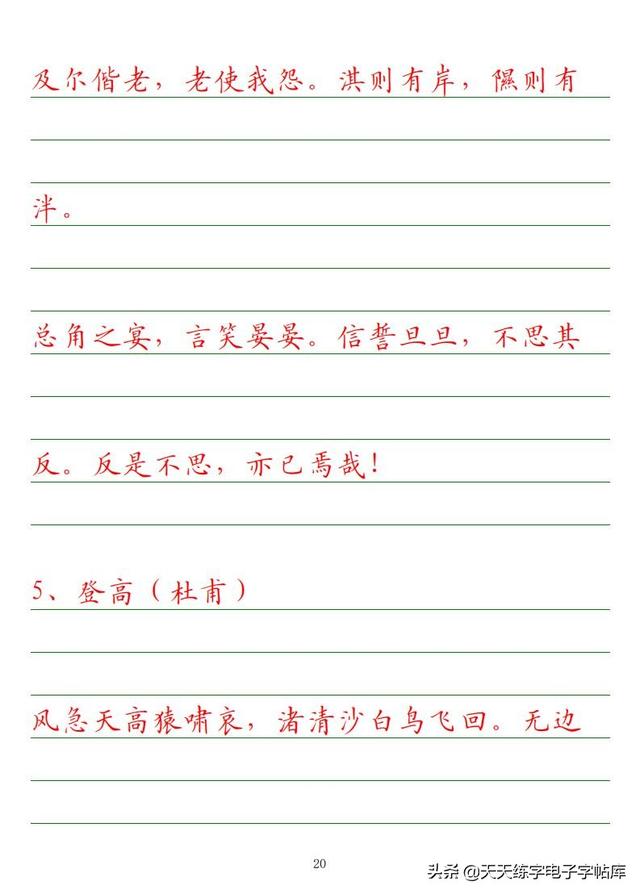 及尔偕老，老使我怨。淇则有岸，隰则有
泮。
总角之宴，言笑晏晏。信誓旦旦，不思其
反。反是不思，亦已焉哉！
5、登高（杜甫）
风急天高猿啸哀，渚清沙白鸟飞回。无边
20
头条 @天天练字电子字帖库